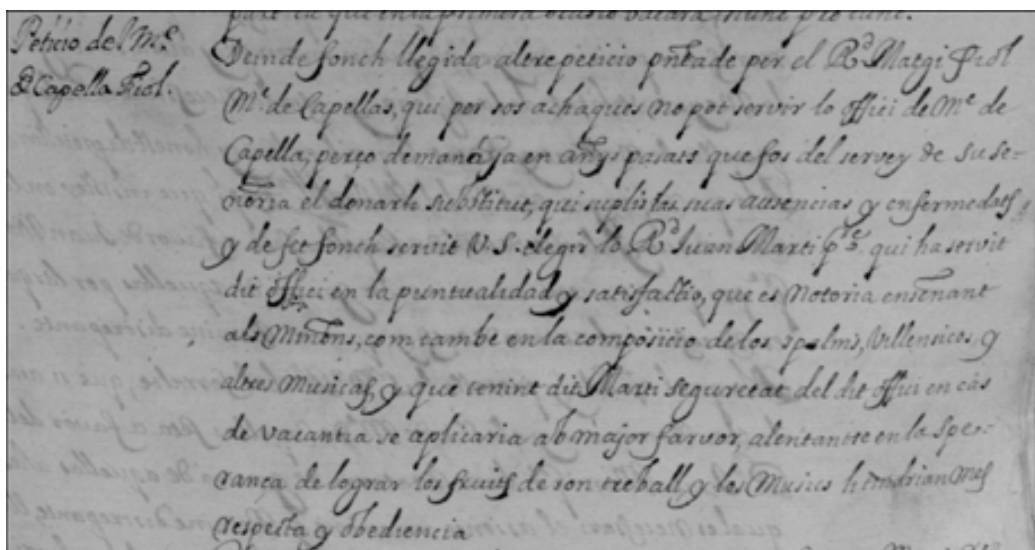 pare ca que en la primera ocasio vacara, nunc pro tunc.
Peticio del Mᵉ.
de Capella Fiol.
Deinde fonch llegida altre peticio pñtade per el Rᵈ Matgi Fiol
Mᵉ. de Capellas, qui per sos achaques no pot servir lo offici de Mᵉ de
Capella, perço demana ja en anys pasats que fos del servey de su se-
ñoria el donarli substitut, qui suplis las suas ausencias y enfermedats,
y de fet fonch servit V.S. elegir lo Rᵈ Juan Marti pʳᵉ. qui ha servit
dit offici en la puntualidad y satisfactio, que es notoria enseñant
als Miñons, com tambe en la composiciò de los spalms, Villensicos, y
altres Musicas, y que tenint dit Marti segurreat del dit offici en cas
de vacantia se aplicaria ab major farvor, alentantse en la spe-
ranca de lograr los fruits de son treball, y los Musics li tendrian mes
respecta y obediencia